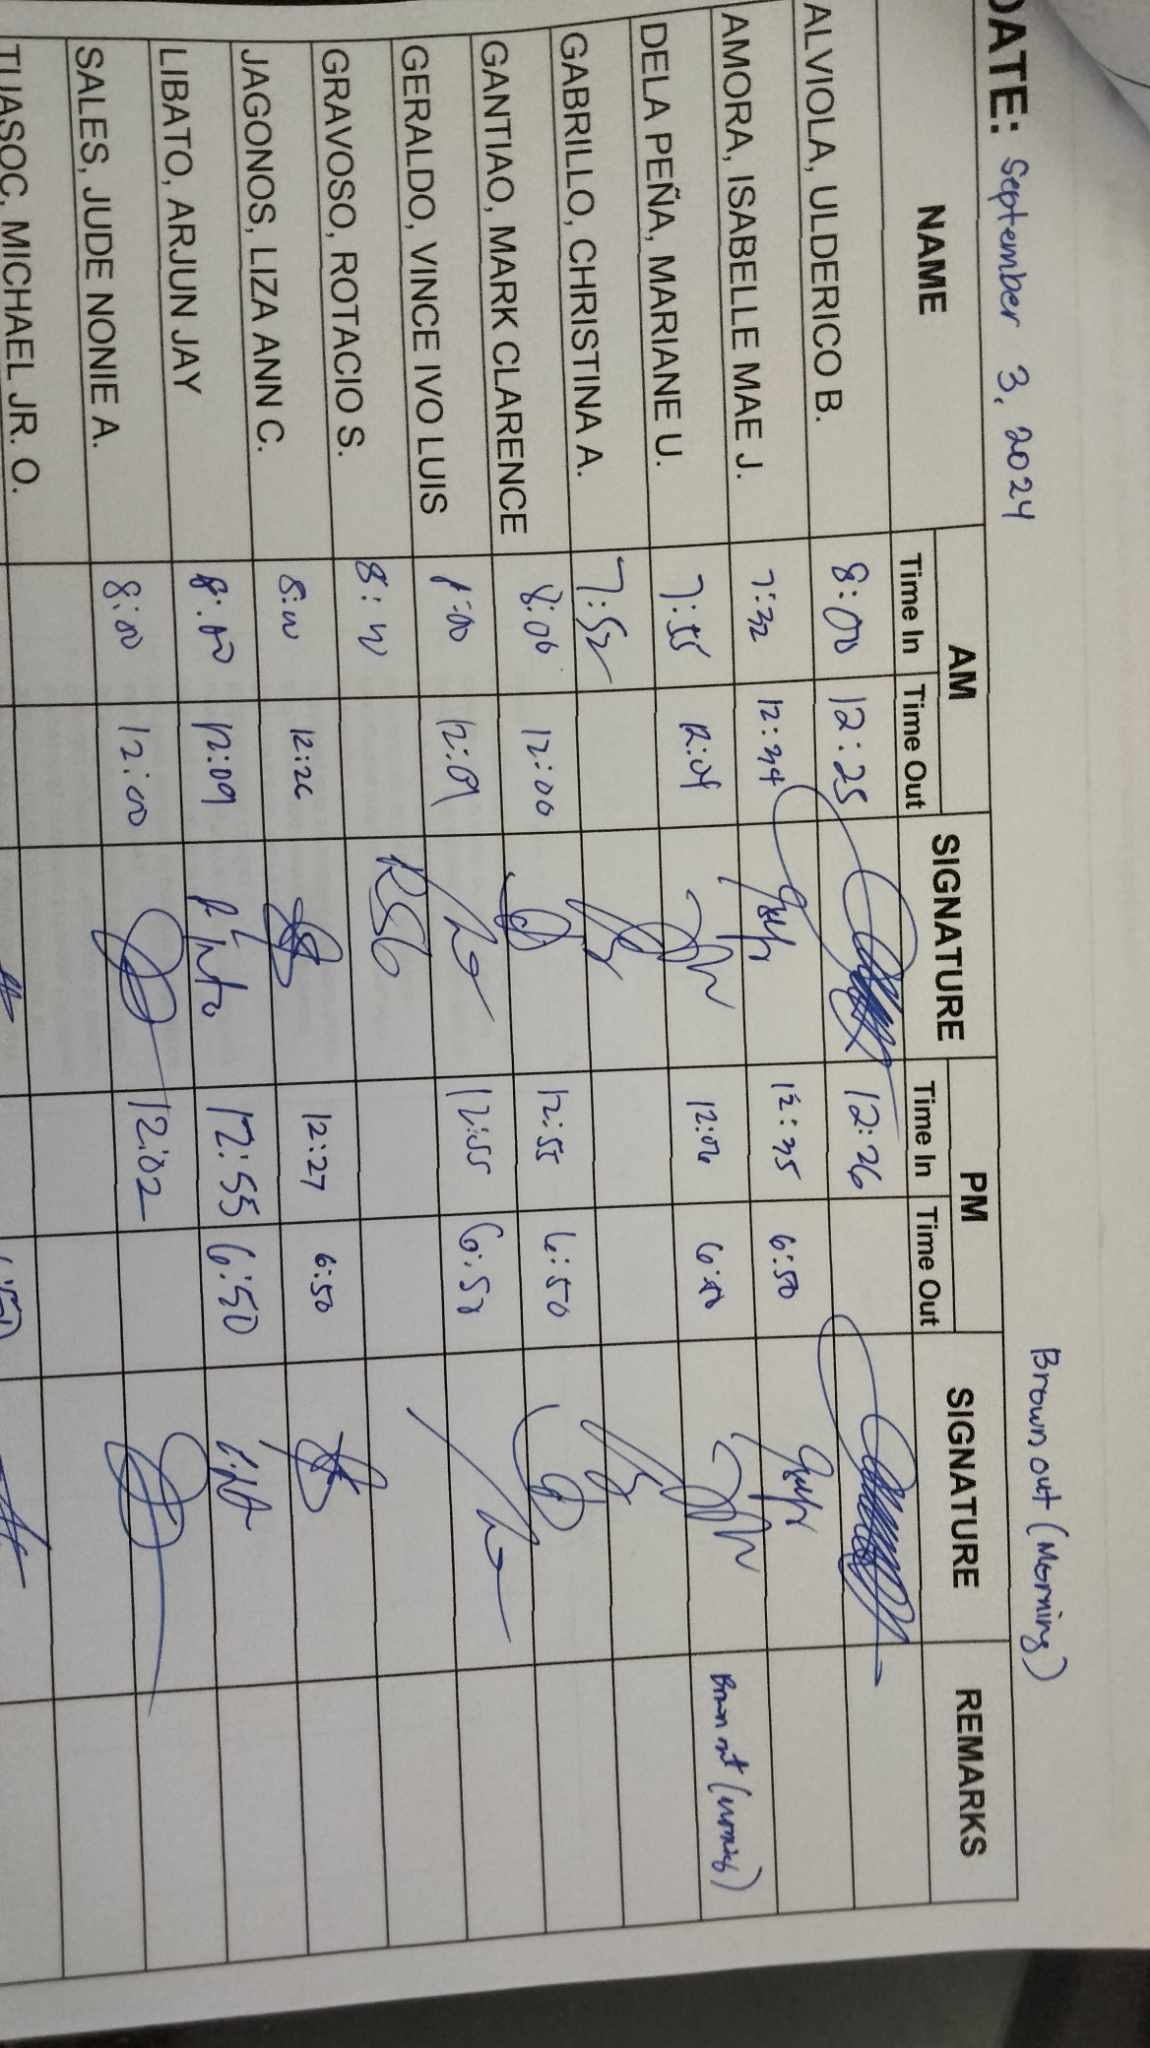 DATE: September 3, 2024
Brown out (Morning)
NAME AM SIGNATURE PM SIGNATURE REMARKS
Time In Time Out Time In Time Out
ALVIOLA, ULDERICO B. 8:00 12:25 12:26
AMORA, ISABELLE MAE J. 7:32 12:34 12:35 6:50
DELA PEÑA, MARIANE U. 7:55 12:04 12:06 Brown out (morning)
GABRILLO, CHRISTINA A. 7:52
GANTIAO, MARK CLARENCE 8:00 12:00 12:55 6:50
GERALDO, VINCE IVO LUIS 12:09 12:55 6:50
GRAVOSO, ROTACIO S. RSG
JAGONOS, LIZA ANN C. 8:00 12:26 12:27 6:50
LIBATO, ARJUN JAY 8:00 12:09 12:55 6:50
SALES, JUDE NONIE A. 8:00 12:00 12:02
TUASOC, MICHAEL JR. O.